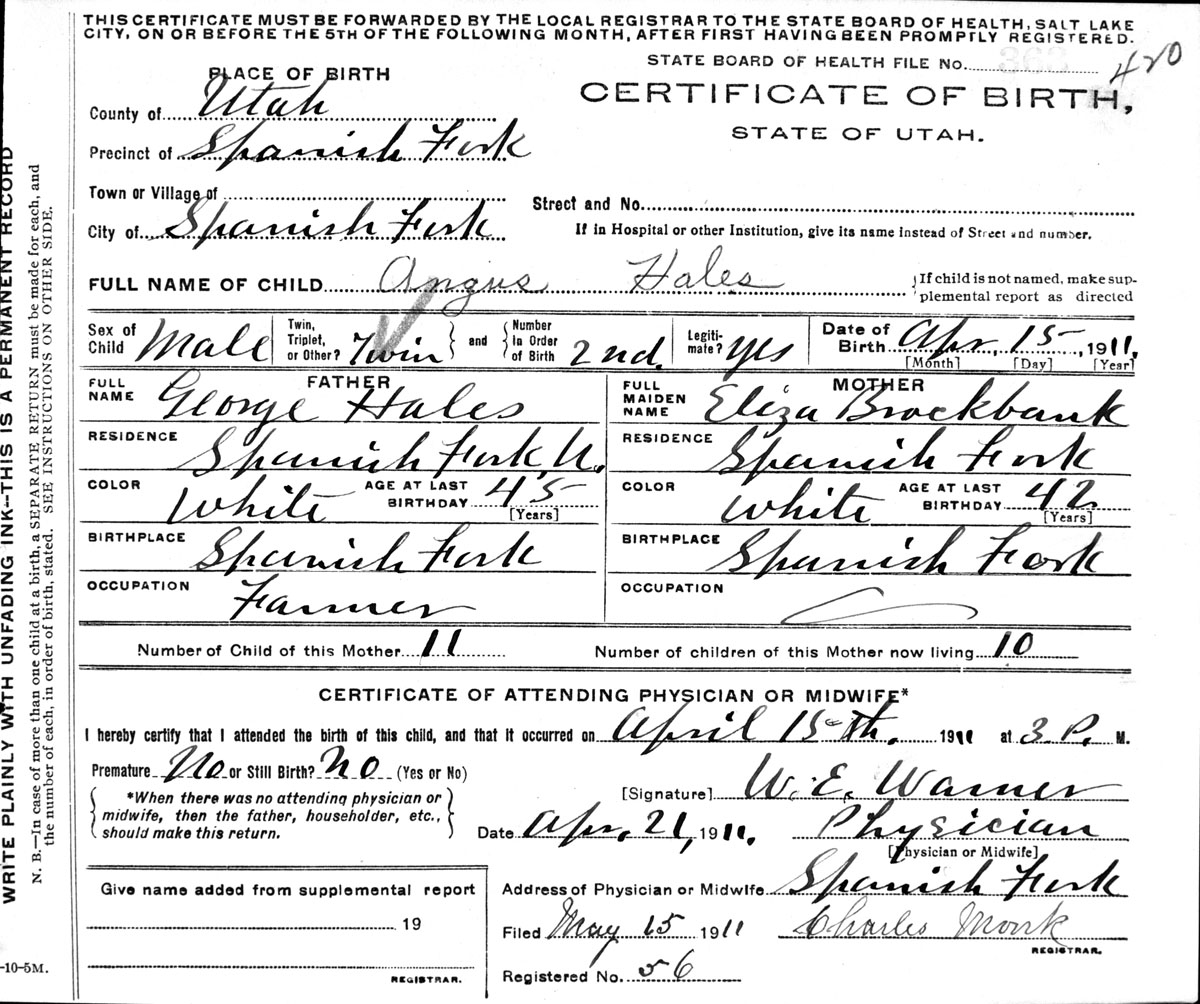 THIS CERTIFICATE MUST BE FORWARDED BY THE LOCAL REGISTRAR TO THE STATE BOARD OF HEALTH, SALT LAKE
CITY, ON OR BEFORE THE 5TH OF THE FOLLOWING MONTH, AFTER FIRST HAVING BEEN PROMPTLY REGISTERED.
STATE BOARD OF HEALTH FILE NO. 363 420
CERTIFICATE OF BIRTH,
STATE OF UTAH.
PLACE OF BIRTH
County of Utah
Precinct of Spanish Fork
Town or Village of
Street and No.
City of Spanish Fork
If in Hospital or other Institution, give its name instead of Street and number.
FULL NAME OF CHILD Angus Hales
{If child is not named, make sup-
plemental report as directed
Sex of Child Male
Twin, Triplet, or Other? Twin
and
Number In Order of Birth 2nd.
Legiti-mate? yes
Date of Birth Apr. 15, 1911.
[Month] [Day] [Year]
FATHER
FULL NAME George Hales
RESIDENCE Spanish Fork, U.
COLOR White
AGE AT LAST BIRTHDAY 45
[Years]
BIRTHPLACE Spanish Fork
OCCUPATION Farmer
MOTHER
FULL MAIDEN NAME Eliza Brockbank
RESIDENCE Spanish Fork
COLOR White
AGE AT LAST BIRTHDAY 42
[Years]
BIRTHPLACE Spanish Fork
OCCUPATION
Number of Child of this Mother 11
Number of children of this Mother now living 10
CERTIFICATE OF ATTENDING PHYSICIAN OR MIDWIFE*
I hereby certify that I attended the birth of this child, and that it occurred on April 15th. 1911 at 3 P. M.
Premature No or Still Birth? No (Yes or No)
*When there was no attending physician or
midwife, then the father, householder, etc.,
should make this return.
[Signature] W. E. Warner
Date Apr. 21, 1911. Physician
[Physician or Midwife]
Address of Physician or Midwife Spanish Fork
Filed May 15 1911 Charles Monk
REGISTRAR.
Registered No. 56
Give name added from supplemental report
19
REGISTRAR.
WRITE PLAINLY WITH UNFADING INK--THIS IS A PERMANENT RECORD
N. B.—In case of more than one child at a birth, a SEPARATE RETURN must be made for each, and
the number of each, in order of birth, stated. SEE INSTRUCTIONS ON OTHER SIDE.
-10-5M.